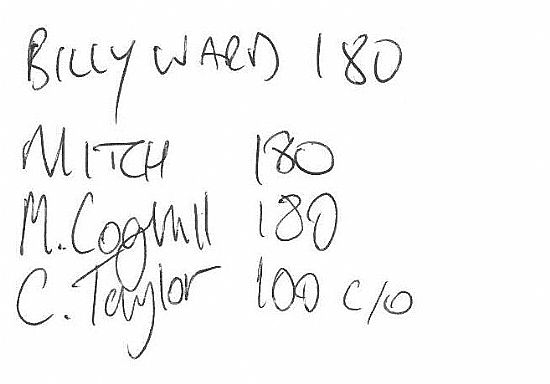 BILLY WARD 180
MITCH 180
M. Coghill 180
C. Taylor 100 c/o